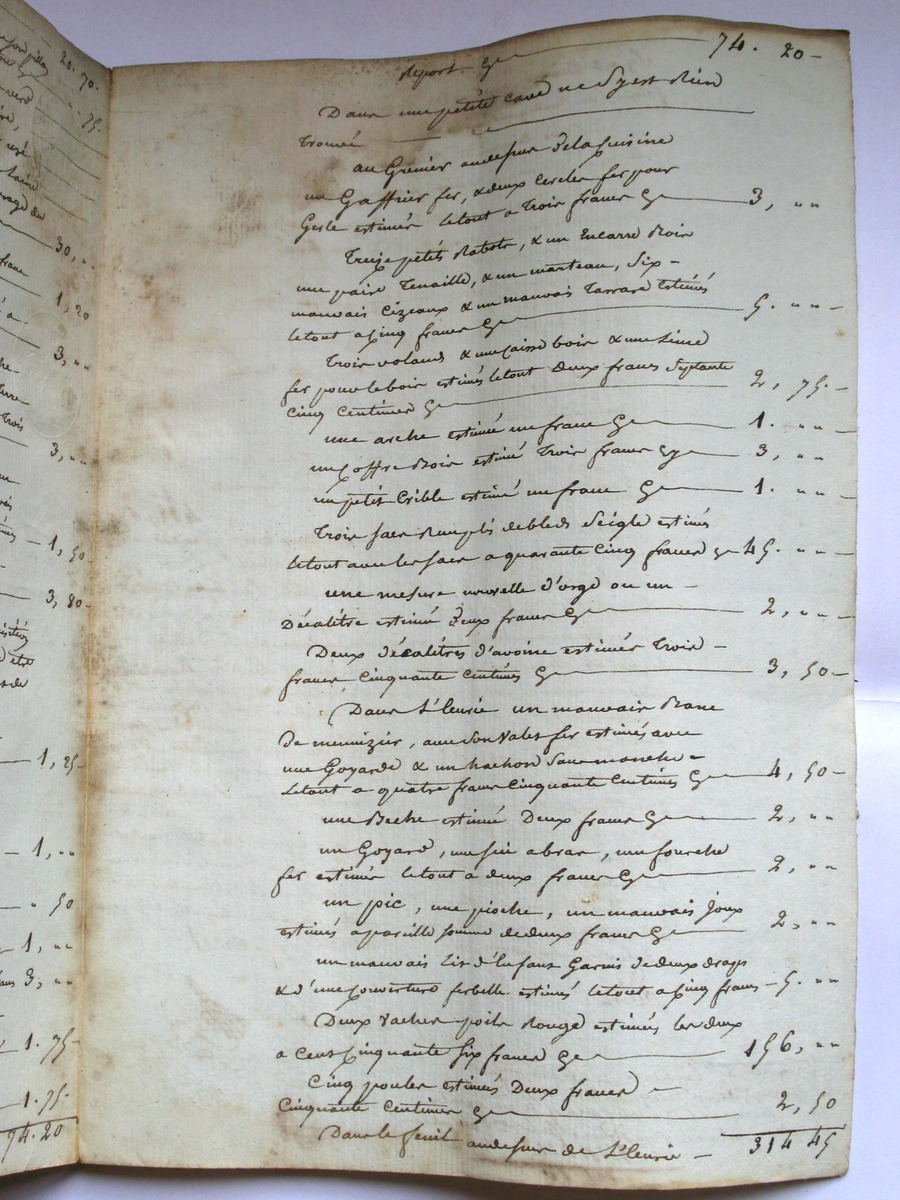 20. 70.
75.
30, ""
1, 20
3, ""
Trois
3, ""
1, 50
3, 80
1, 25
1, ""
" 50
1, ""
3, ""
1. 75
1. 75.
74. 20
Report 74. 20
Dans une petite cave ne s'y est Rien
Trouvé
au Grenier audessus de la Cuisine
un Gaffrier fer, & deux cercles fer pour
Gerle estimés letout a Trois francs 3, ""
Treize petits Rabots, & un Encarre Bois
une paire Tenaille, & un marteau, Six
mauvais Cizeaux & un mauvais Tarrare Estimés
letout a Cinq francs 5. ""
Trois volans & une caisse bois & une Lime
fer pour le bois estimés letout Deux francs Septante
Cinq Centimes 2, 75.
une arche estimée un franc 1. ""
un Coffre Bois estimé Trois francs 3, ""
un petit Crible estimé un franc 1. ""
Trois sacs Remplis de bleds Seigle estimés
letout avec les sacs a quarante Cinq francs 45. ""
une mesure nouvelle d'orge ou un
Décalitre estimée Deux francs 2, ""
Deux décalitres d'avoine estimés Trois
francs Cinquante centimes 3, 50
Dans l'Ecurie un mauvais Banc
De menuizier, avec son Valet fer estimés avec
une Goyarde & un hachon Sans manche
Letout a quatre francs Cinquante Centimes 4, 50
une Beche estimée Deux francs 2, ""
un Goyard, une sie a bras, une fourche
fer estimés letout a deux francs 2, ""
un pic, une pioche, un mauvais Joux
estimés a pareille somme de deux francs 2, ""
un mauvais Lit d'Enfant Garnis de deux draps
& d'une Couverture estimés letout a Cinq francs 5. ""
Deux Vaches poils Rouge estimées les deux
a Cent Cinquante Six francs 156, ""
Cinq poules estimées Deux francs
Cinquante Centimes 2, 50
Dans le feuil audessus de l'Ecurie 314 45